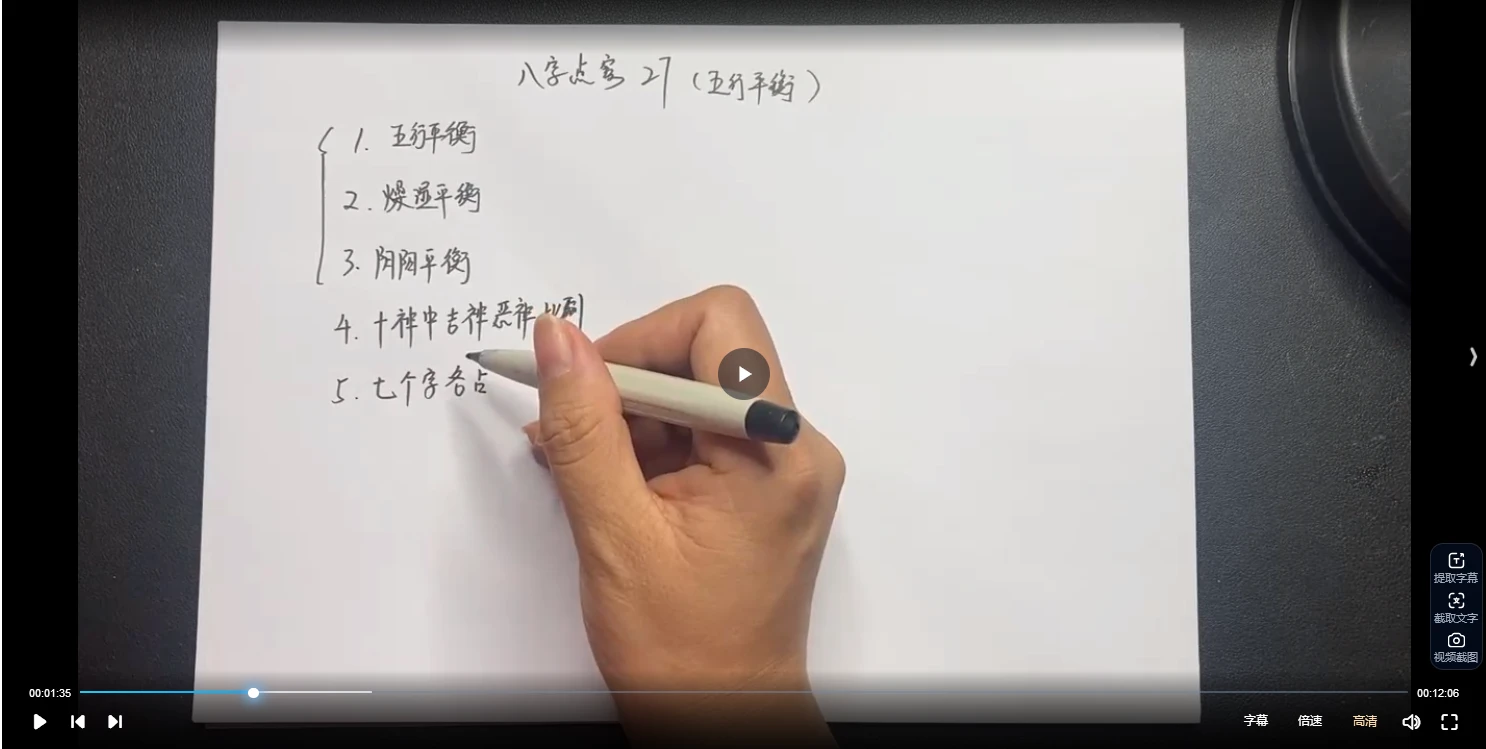 八字点窍 27（五行平衡）
1. 五行平衡
2. 燥湿平衡
3. 阴阳平衡
4. 十神中吉神恶神
5. 七个字各占
提取字幕
截取文字
视频截图
00:01:35
00:12:06
字幕
倍速
高清